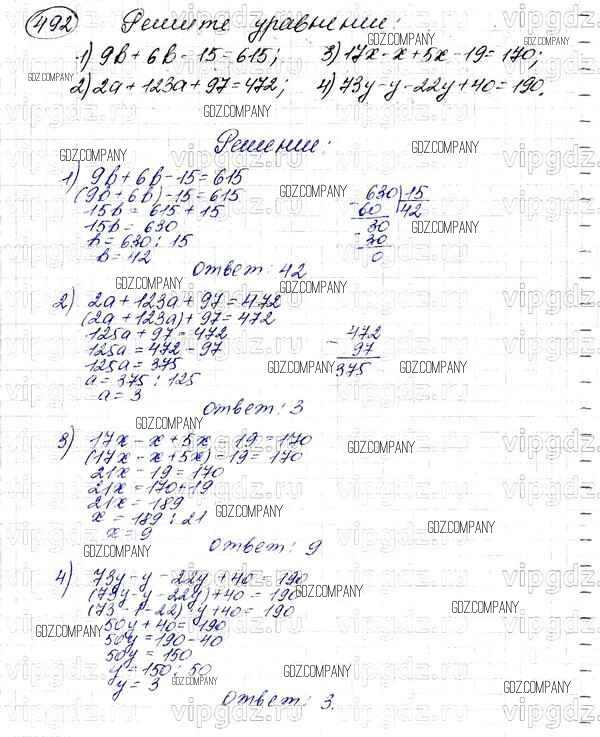 492 Решите уравнения:
1) 9в + 6в - 15 = 615; 3) 17х - х + 5х - 19 = 170;
2) 2а + 123а + 97 = 472; 4) 73у - у - 22у + 40 = 190.
Решения:
1) 9в + 6в - 15 = 615
(9в + 6в) - 15 = 615
15в = 615 + 15
15в = 630
в = 630 : 15
в = 42
630 15
- 60 42
30
- 30
0
ответ: 42
2) 2а + 123а + 97 = 472
(2а + 123а) + 97 = 472
125а + 97 = 472
125а = 472 - 97
125а = 375
а = 375 : 125
а = 3
- 472
97
375
ответ: 3
3) 17х - х + 5х - 19 = 170
(17х - х + 5х) - 19 = 170
21х - 19 = 170
21х = 170 + 19
21х = 189
х = 189 : 21
х = 9
ответ: 9
4) 73у - у - 22у + 40 = 190
(73у - у - 22у) + 40 = 190
(73 - 1 - 22) у + 40 = 190
50у + 40 = 190
50у = 190 - 40
50у = 150
у = 150 : 50
у = 3
ответ: 3.
GDZ.COMPANY
vipgdz.ru